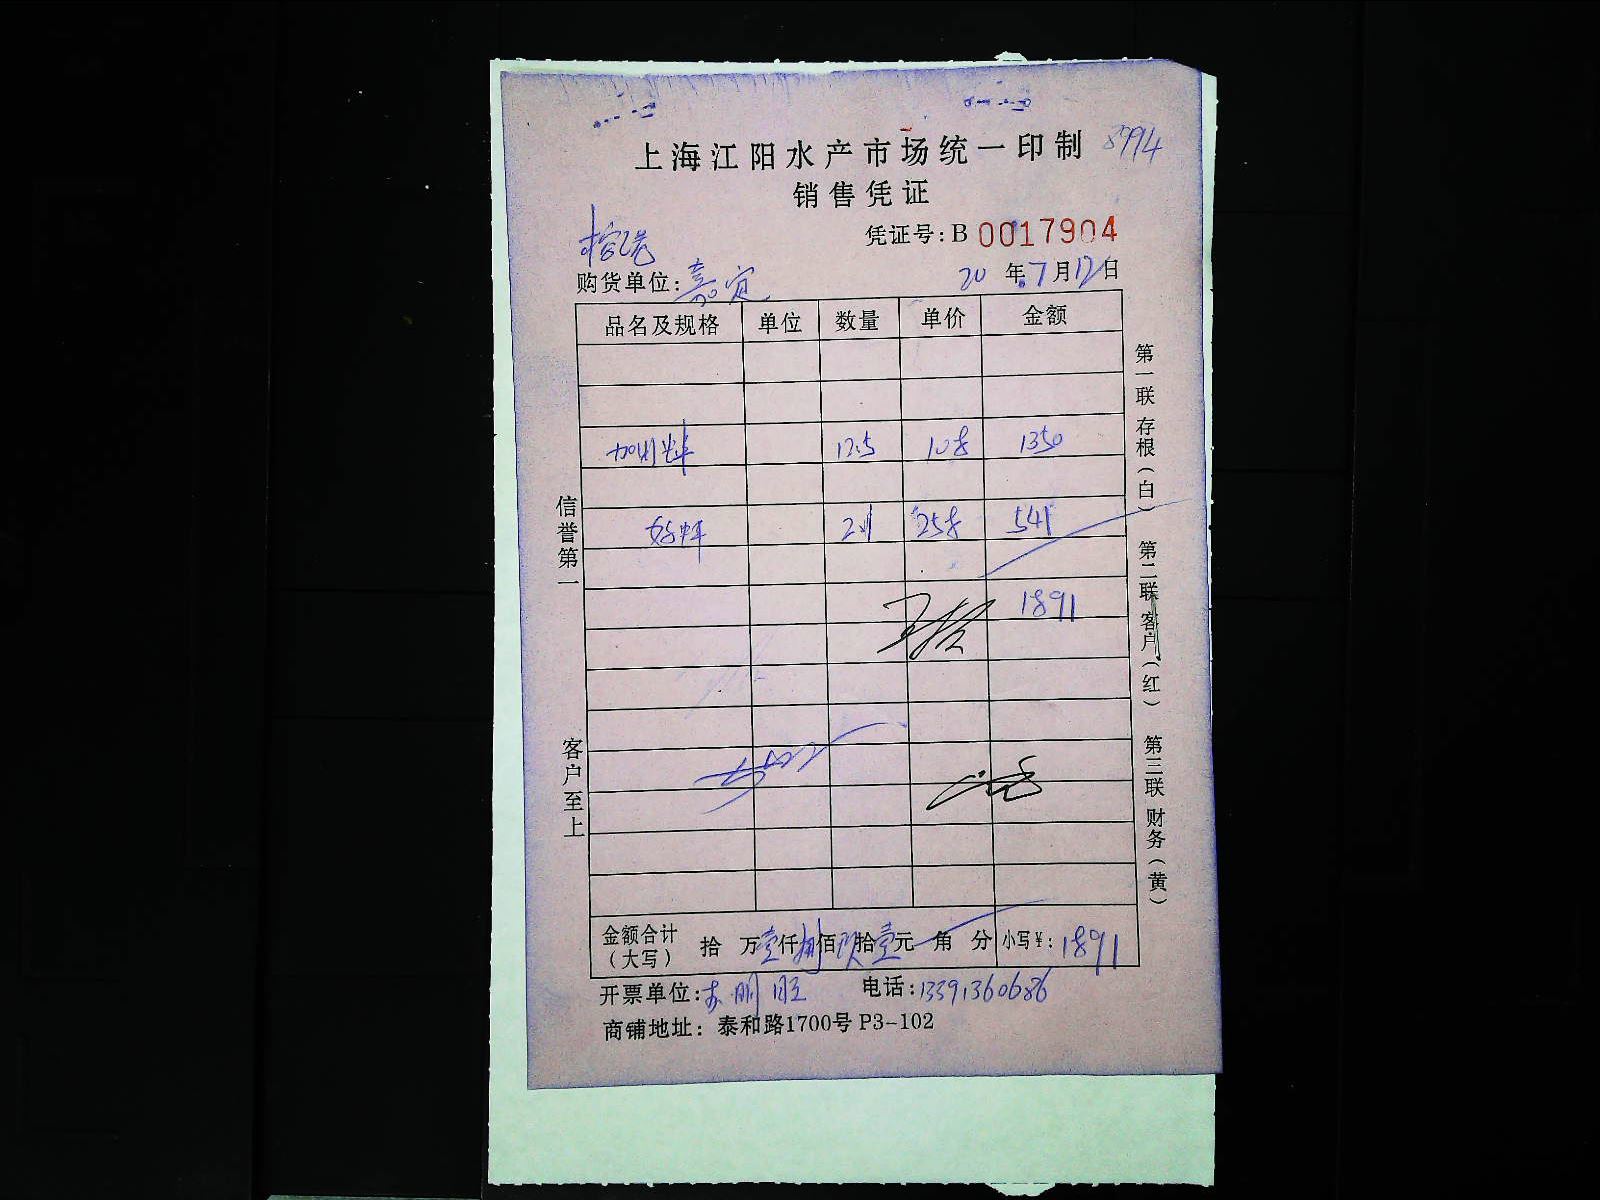 8994
上海江阳水产市场统一印制
销售凭证
凭证号: B 0017904
购货单位: 嘉定
20 年 7 月 12 日
品名及规格 单位 数量 单价 金额
12.5 108 1350
258 541
1891
信誉第一
客户至上
第一联 存根(白)
第二联 客户(红)
第三联 财务(黄)
金额合计(大写) 拾 万壹仟捌佰玖拾壹元 角 分 小写¥: 1891
开票单位: 电话: 13391360686
商铺地址: 泰和路1700号 P3-102